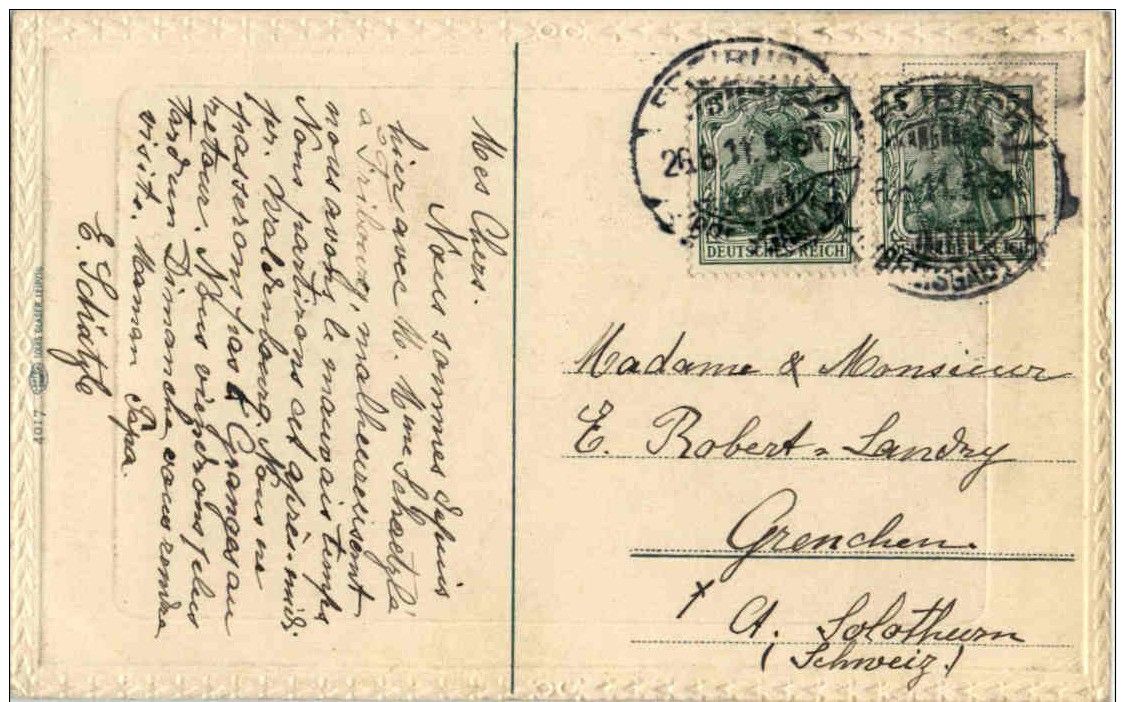 Mes Chers.
Nous sommes depuis
hier avec M. Mme Schaetzlé
à Fribourg, malheureusement
nous avons le mauvais temps
Nous partirons cet après-midi.
pr. Waldenbourg. Nous ne
passerons pas à Granges au
retour. Nous viendrons plus
tard un Dimanche vous rendre
visite. Maman Papa.
E. Schätzle
4017
5 5
5
DEUTSCHES REICH
REICH
26.6.11.5-6N.
Madame & Monsieur
E. Robert-Landry
Grenchen.
Ct. Solothurn
(Schweiz.)